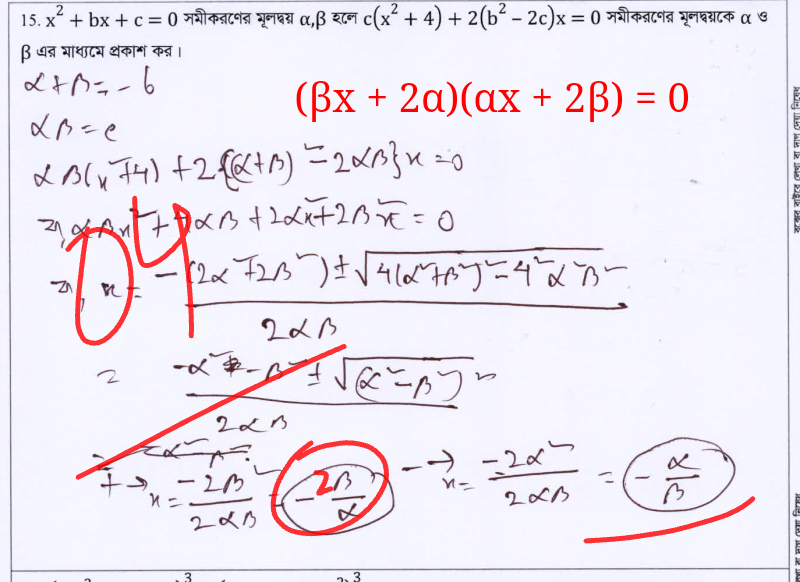 15. x² + bx + c = 0 সমীকরণের মূলদ্বয় α,β হলে c(x² + 4) + 2(b² − 2c)x = 0 সমীকরণের মূলদ্বয়কে α ও
β এর মাধ্যমে প্রকাশ কর।
α+β = −b
(βx + 2α)(αx + 2β) = 0
αβ = c
αβ(x²+4) + 2{(α+β)² − 2αβ}x = 0
বা, αβx² + 4αβ + 2α²x + 2β²x = 0
04
বা, x = −(2α²+2β²) ± √4(α²+β²)² − 4²α²β²
2αβ
= −α² − β² ± √(α²−β²)²
2αβ
+ → x = −2β² / 2αβ = − 2β/α
− → x = −2α² / 2αβ = − α/β